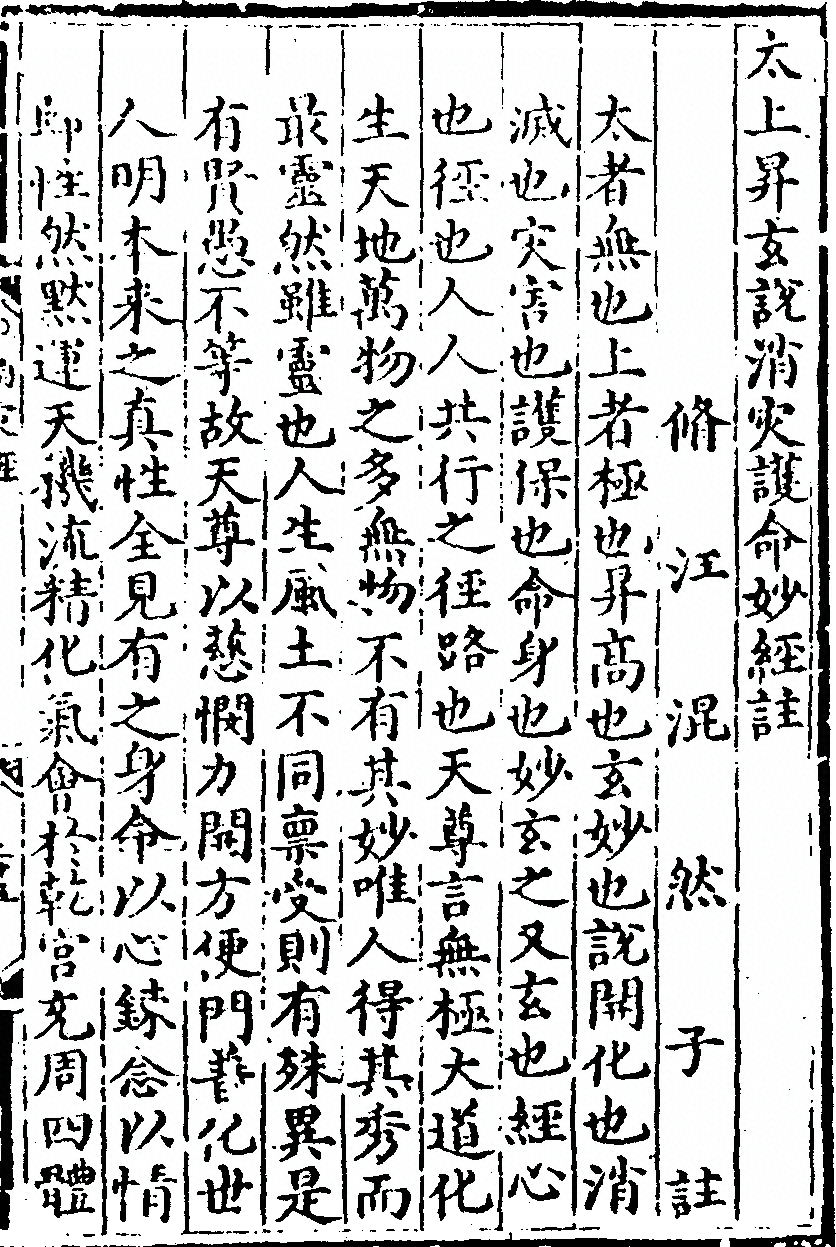 太上昇玄說消災護命妙經註
脩江混然子註
太者無也上者極也昇高也玄妙也說開化也消
滅也災害也護保也命身也妙玄之又玄也經心
也徑也人人共行之徑路也天尊言無極大道化
生天地萬物之多無物不有其妙唯人得其秀而
最靈然雖靈也人生風土不同稟受則有殊異是
有賢愚不等故天尊以慈憫力開方便門善化世
人明本来之真性全見有之身命以心鍊念以情
歸性然默運天機流精化氣會於乾宮充周四體